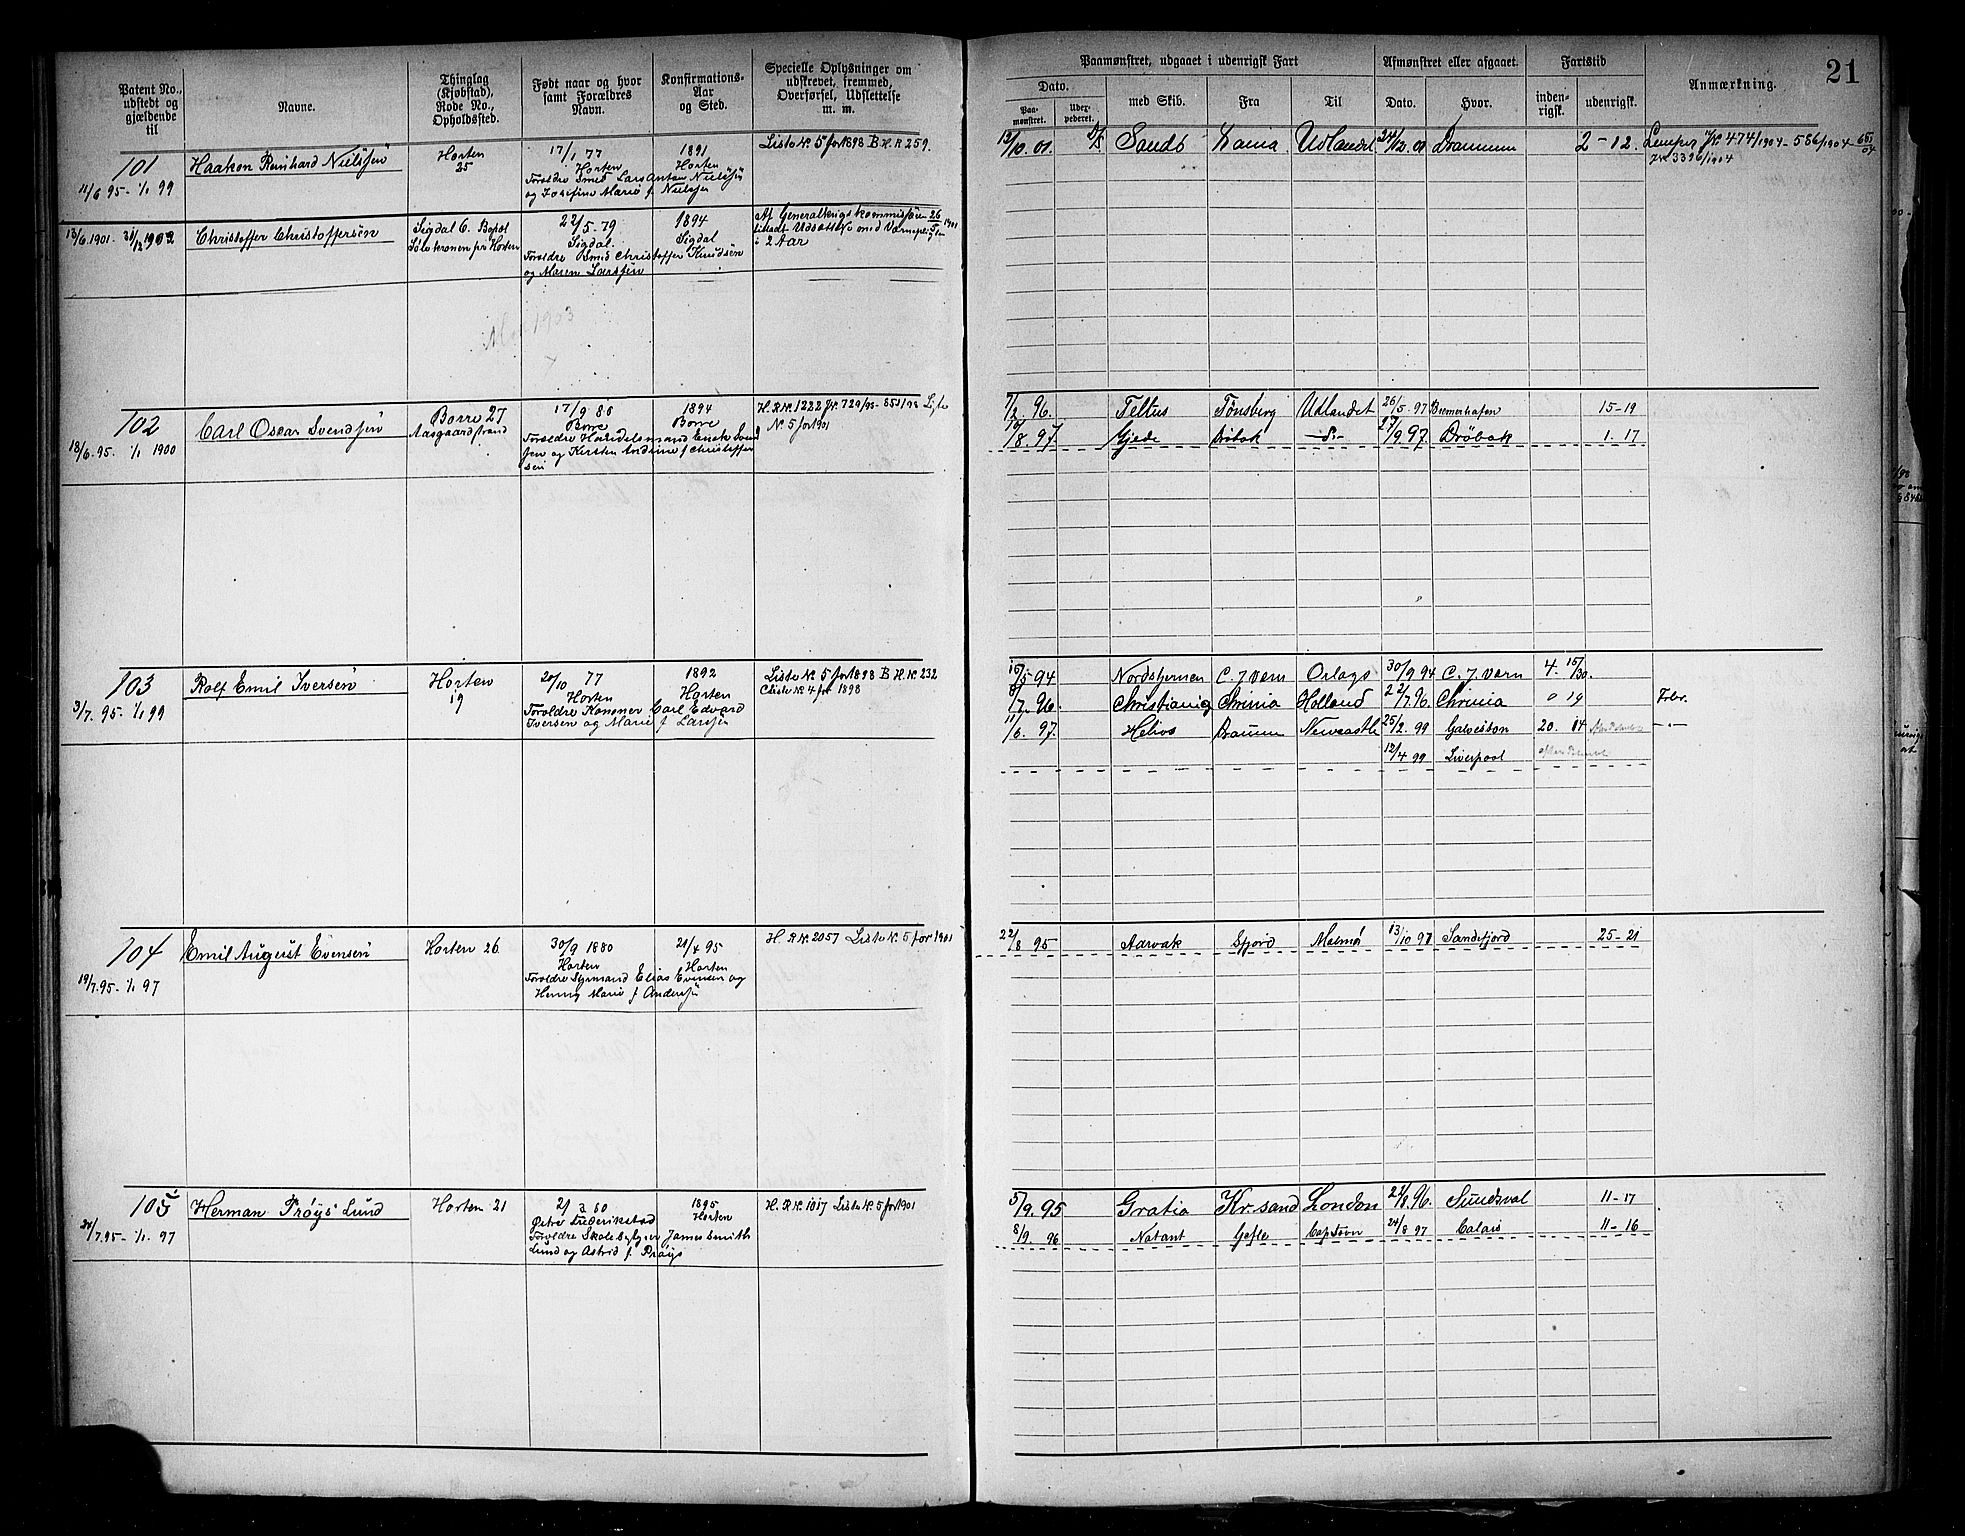 21
Patent No., udstedt og gjældende til
Navne.
Thinglag (Kjøbstad), Rode No., Opholdssted.
Født naar og hvor samt Forældres Navn.
Konfirmations-Aar og Sted.
Specielle Oplysninger om udskrevet, fremmed, Overførsel, Udslettelse m. m.
Paamønstret, udgaaet i udenrigsk Fart
Afmønstret eller afgaaet.
Fartstid
Anmærkning.
Dato.
Paa-mønstret.
med Skib.
Fra
Til
Dato.
Hvor.
inden-rigsk.
udenrigsk.
101
11/6 95 - 1/1 99
Haakon Reinhard Nielsen
Horten
25
17/1 77
Horten
Forældre Smed Lars Anton Nielsen
og Josefine Marie f Nielsen
1891
Horten
Liste No 5 for 1898 B H. R 259.
13/10. 01. D/S Sandø Xania Udlandet 24/12. 01 Drammen 2 - 12.
474/1904 - 586/1904
3396/1904
13/6. 1901. 31/12 1902
Christoffer Christoffersen
Sigdal 6. Bopæl
pr Horten
22/5 - 79
Sigdal.
Forældre Smed Christoffer Knudsen
og Maren Larsen
1894
Sigdal
Af Generalkrigskommissæren 26/5 1901
tilstaaet Udsættelse med Værnepligten
i 2 Aar
Mai 1903
102
18/6. 95. 1/1 1900
Carl Oscar Svendsen
Borre 27
Aasgaardstrand
17/9 80
Borre
Forældre Handelsmand Svend
sen og Kirsten Andrine f Christoffer
sen
1894
Borre
H. R No. 1222 Liste
No. 5 for 1901
7/2. 96. Tellus Tønsberg Udlandet 26/5. 97 Bremerhafen 15 - 19
10/8. 97. Gjede Drøbak 27/9 97. Drøbak 1. 17
103
3/7. 95. - 1/1 99
Rolf Emil Iversen
Horten
19
20/10 77
Horten
Forældre Carl Edvard
Iversen og Marie f Larsen
1892
Horten
Liste No 5 for 1898 B H. No 232
Cliste No. 4 for 1898
94 Nordstjernen C. J Vern Orlogs 30/9 94 C. J. Vern 4. 15/30.
7. 96. Christiania Chrinia Holland 22/7. 96. Chrinia 0 19
11/6. 97. Helios Newcastle 25/2. 99 Galveston 20.
12/4 99 Liverpool
104
19/7. 95 - 1/1 97
Emil August Evensen
Horten 26.
30/9 1880
Horten
Forældre Styrmand Elias Evensen og
Henny Marie f Andersen
21/4 95
Horten
H. R No. 2057 Liste No. 5 for 1901
22/8 95 Aarvak Sfjord Malmø 13/10 97 Sandefjord 25 - 21
105
20/7. 95 - 1/1. 97
Herman Prøys Lund
Horten 21
21/3. 80
Østre Frederikstad
Forældre Skolebestyrer James Smith
Lund og Astrid f Prøys
1895
Horten
H. R No. 1017 Liste No. 5 for 1901
5/9. 95 Gratia Kr. sand London 96. Sundsval 11 - 17
8/9. 96 Natant Gefle Captown 24/8 97 Calais 11 - 16